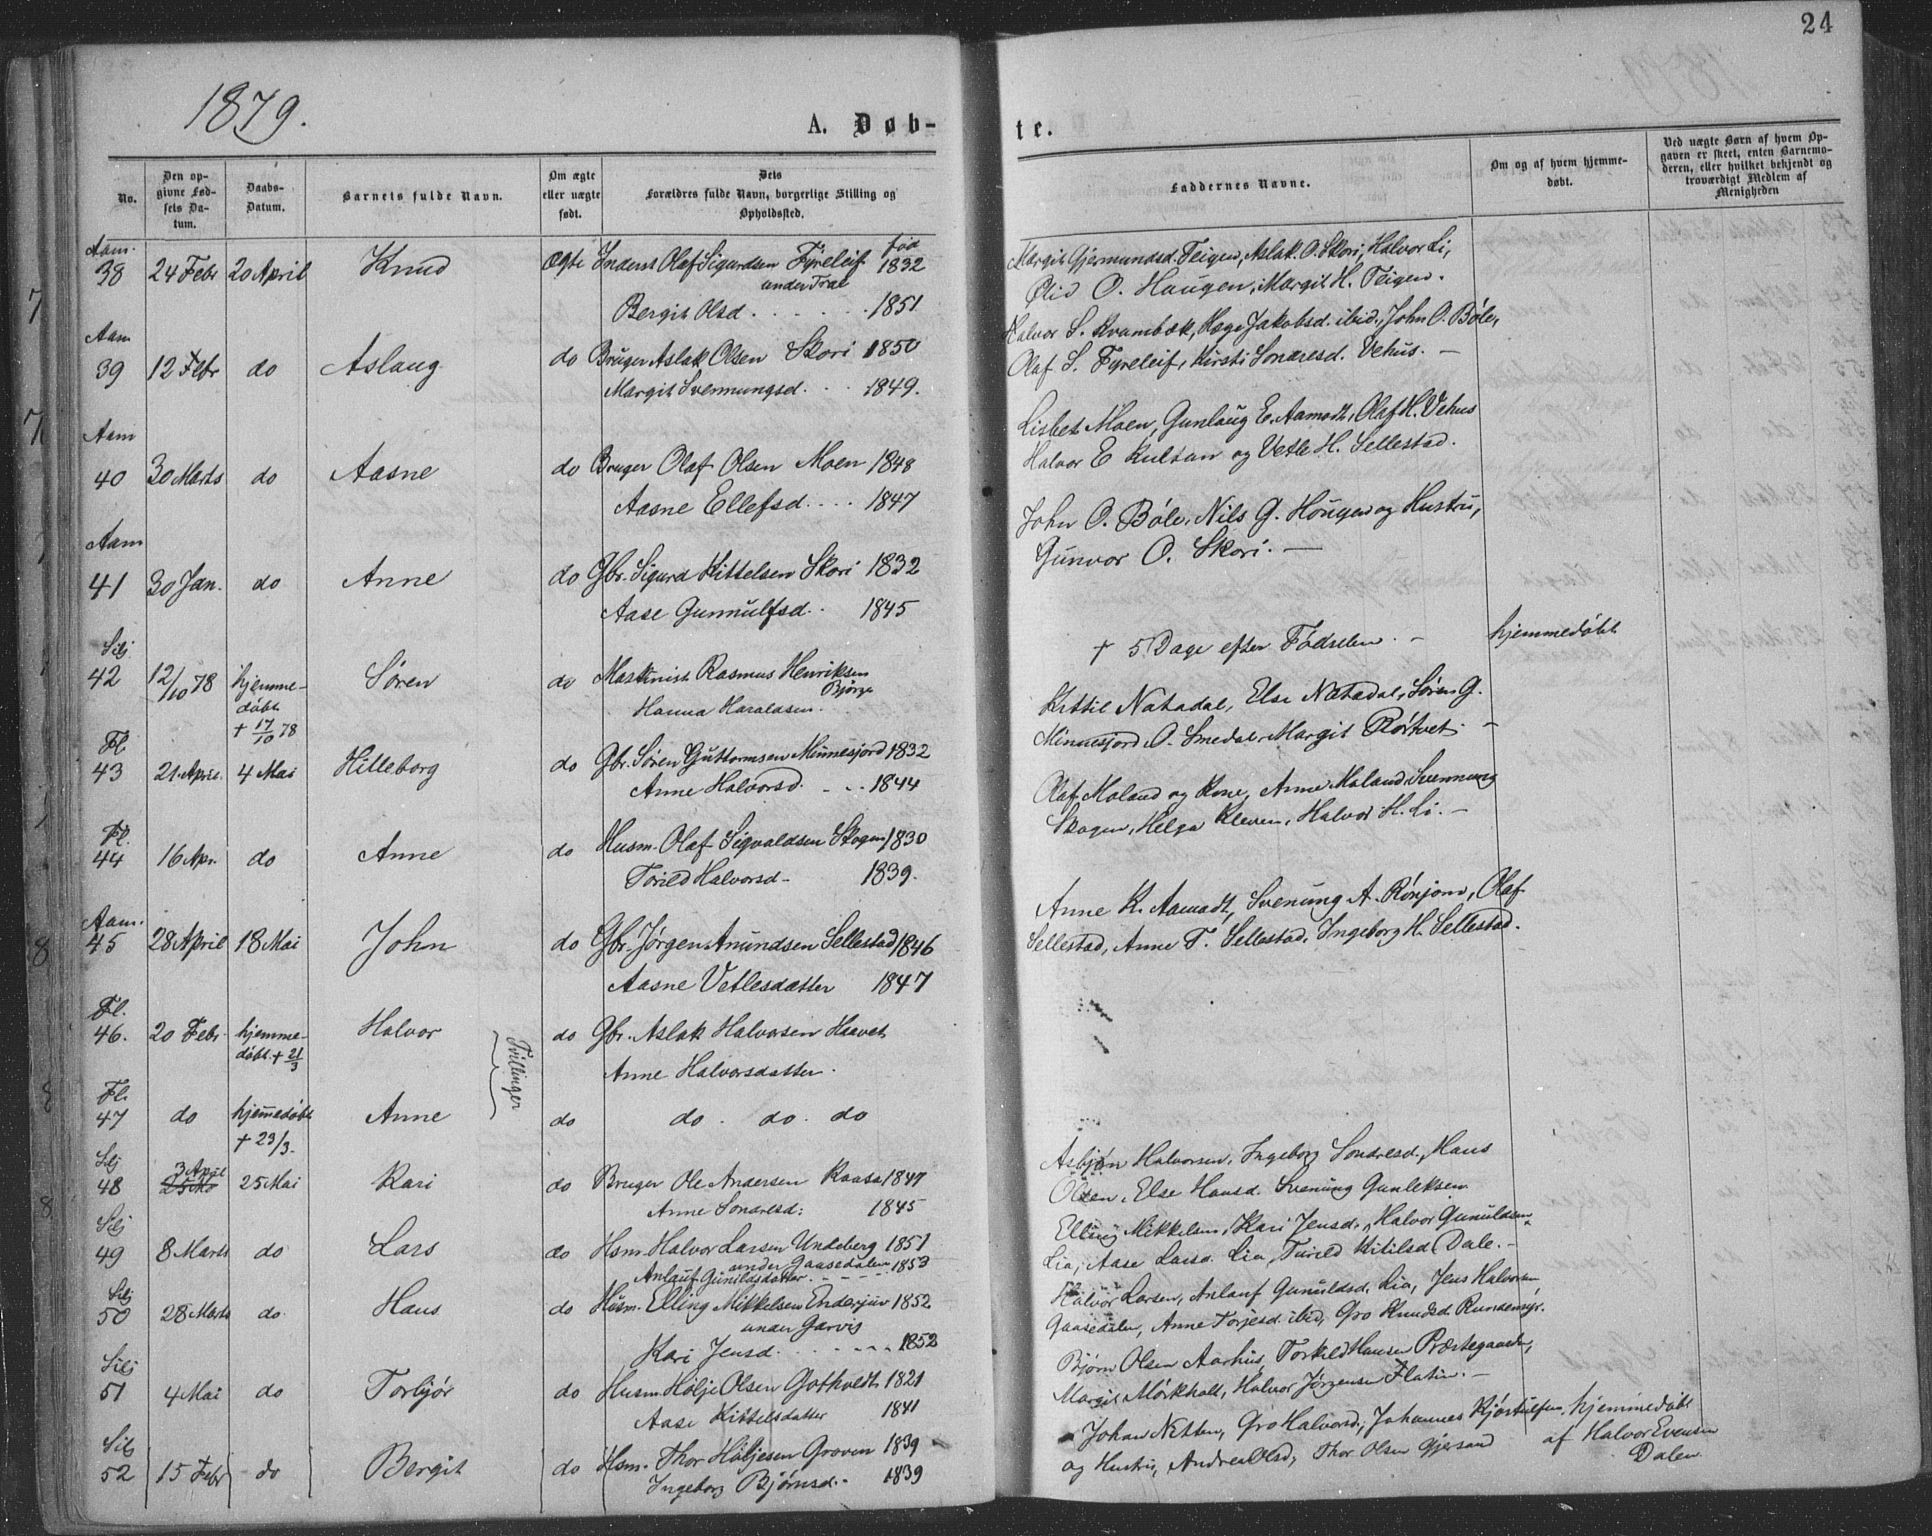 24
1879.
A. Døb-
te.
No.
Den op-
givne Fød-
sels Da-
tum.
Daabs-
Datum.
Barnets fulde Navn.
Om ægte
eller uægte
født.
Dets
Forældres fulde Navn, borgerlige Stilling og
Opholdssted.
Faddernes Navne.
Om og af hvem hjemme-
døbt.
Ved uægte Børn af hvem Op-
gaven er skeet, enten Barnemo-
deren, eller hvilket bekjendt og
troværdigt Medlem af
Menigheden
Aam.
38 24 Febr 20 April Knud Ægte Inderst Olaf Sigurdsen Fyreleif født 1832
under Træ
Bergit Olsd. 1851.
Margit Gjermundsd. Teigen, Aslak O. Skori, Halvor Li,
Ølid O. Haugen, Margit H. Teigen.
Aam
39 12 Febr do Aslaug do Bruger Aslak Olsen Skori 1850
Margit Svennungsd. 1849.
Halvor S. Kvambæk, Hæge Jakobsd. ibid., John O. Bøle,
Olaf S. Fyreleif, Kirsti Sondresd. Vehus. —
Aam
40 30 Marts do Aasne do Bruger Olaf Olsen Moen 1848
Aasne Ellefsd. 1847
Lisbet Moen, Gunlaug E. Aamodt, Olaf H. Vehus
Halvor E Kultan og Vetle H. Sellestad.
Aam
41 30 Jan. do Anne do Gbr. Sigurd Kittelsen Skori 1832
Aase Gunnulfsd. 1845
John O. Bøle, Nils G. Hougen og Hustru,
Gunvor O. Skori. —
Silj
42 12/10 78 hjemme-
døbt
+ 17/10 78
Søren do Maskinist Rasmus Henriksen
Bjørge
Hanna Haraldsen.
+ 5 Dage efter Fødselen. — hjemmedøbt
Fl.
43 21 April. 4 Mai Hilleborg do Gbr. Søren Guttormsen Minnesjord 1832
Anne Halvorsd. 1844
Kittil Natadal, Else Natadal, Søren G.
Minnesjord, O. Smedal, Margit Rørtvet —
Fl.
44 16 Apr. do Anne do Husm. Olaf Sigvaldsen Skogen 1830
Torild Halvorsd— 1839.
Olaf Moland og Kone, Anne Moland, Svennung
Skogen, Helga Kleven, Halvor H. Li. —
Aam.
45 28 April 18 Mai John do Gbr. Jørgen Anundsen Sellestad 1846
Aasne Vetlesdatter 1847
Anne K. Aamodt, Svenung A. Rønjom, Olaf
Sellestad, Anne T. Sellestad, Ingeborg H. Sellestad.
Fl.
46. 20 Febr hjemme-
døbt. + 21/3
Halvor do Gbr. Aslak Halvorsen Haavet
Anne Halvorsdatter.
Tvillinger
Fl.
47 do hjemmedøbt
+ 23/3.
Anne do do. do. do
Silj
48 3 April
25 Mai Kari do Bruger Ole Andersen Kaasa 1847
Anne Sondresd: 1845
Asbjøn Halvorsen, Ingeborg Sondresd., Hans
Olsen, Else Hansd. Svenung Gunleksen
Silj
49 8 Marts do Lars do Hsm. Halvor Larsen Undeberg 1851
under Gaasedalen
Anlauf Gunuldsdatter. 1853
Elling Mikkelsen, Kari Jensd., Halvor Gunuldsen
Lia, Aase Larsd. Lia, Turild Kitilsd. Dale. —
Silj
50 28 Marts do Hans do Husm. Elling Mikkelsen Enderjuv 1852
under Garvis
Kari Jensd. 1852
Halvor Larsen, Anlauf Gunuldsd. Lia, Jens Halvorsen
Gaasedalen, Anne Torjesd. ibid, Gro Knudsd. Rundemyr.
Silj
51 4 Mai do Torbjør do Husm. Hølje Olsen Gothvedt 1821
Aase Kittelsdatter 1841
Bjørn Olsen Aarhus, Torkild Hansen Præstegaarden,
Margit Mørkholt, Halvor Jørgensen Flatin. —
Silj
52 15 Febr do Bergit do Hsm. Thor Høljesen Groven 1839
Ingeborg Bjørnsd. 1839
Johan Netten, Gro Halvorsd., Johannes Kjøstulfsen
og Hustru, Andrea Olsd, Thor Olsen Gjersand
hjemmedøbt
af Halvor Evensen
Dalen